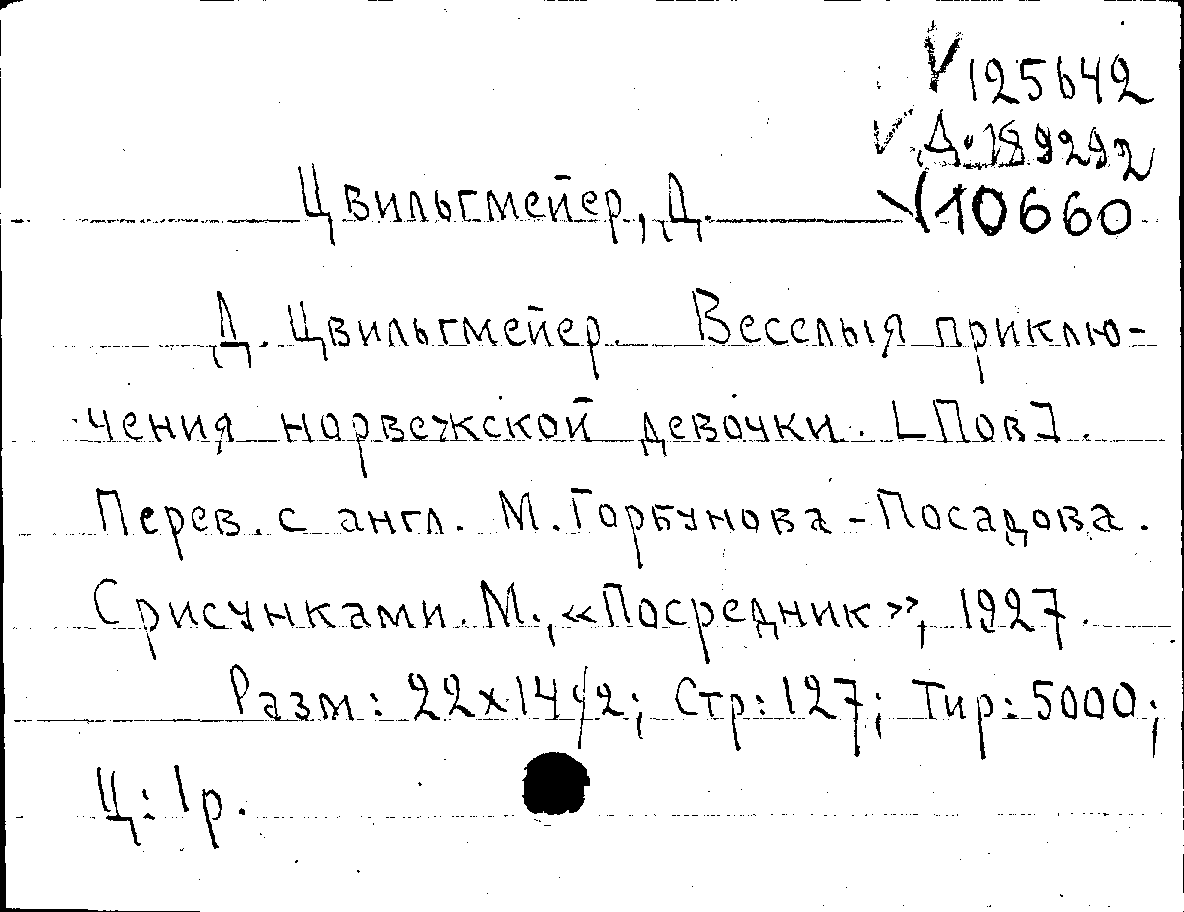 V 125642
V Д. 189292
V 10660
Цвильгмейер, Д.
Д. Цвильгмейер. Веселыя приклю-
чения норвежской девочки. [Пов].
Перев. с англ. М. Горбунова-Посадова.
С рисунками. М., «Посредник», 1927.
Разм: 22x14 1/2; Стр: 127; Тир: 5000;
Ц: 1р.